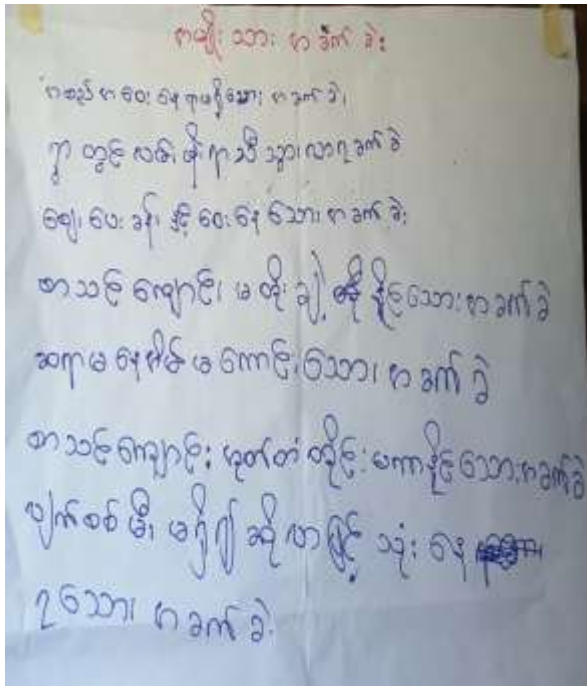 အမျိုးသား အခက်ခဲး
အစည်အဝေး နေရာမရှိသော အခက်ခဲ၊
ရွာတွင်းလမ်း မိုးရာသီသွားလာရခက်ခဲ
ဈေး ပေးခန်း နှင့် ဝေးနေသော အခက်ခဲး
စာသင်ကျောင်း မတိုးချဲ့ နိုင်သော အခက်ခဲ
ဆရာမနေအိမ် မကောင်းသော အခက်ခဲ
စာသင်ကျောင်း အုတ်တံတိုင်း မကာနိုင်သော အခက်ခဲ
လျှက်စစ်မီး မရှိ၍ ဆိုလာဖြင့် သုံးနေ
ရသော အခက်ခဲ